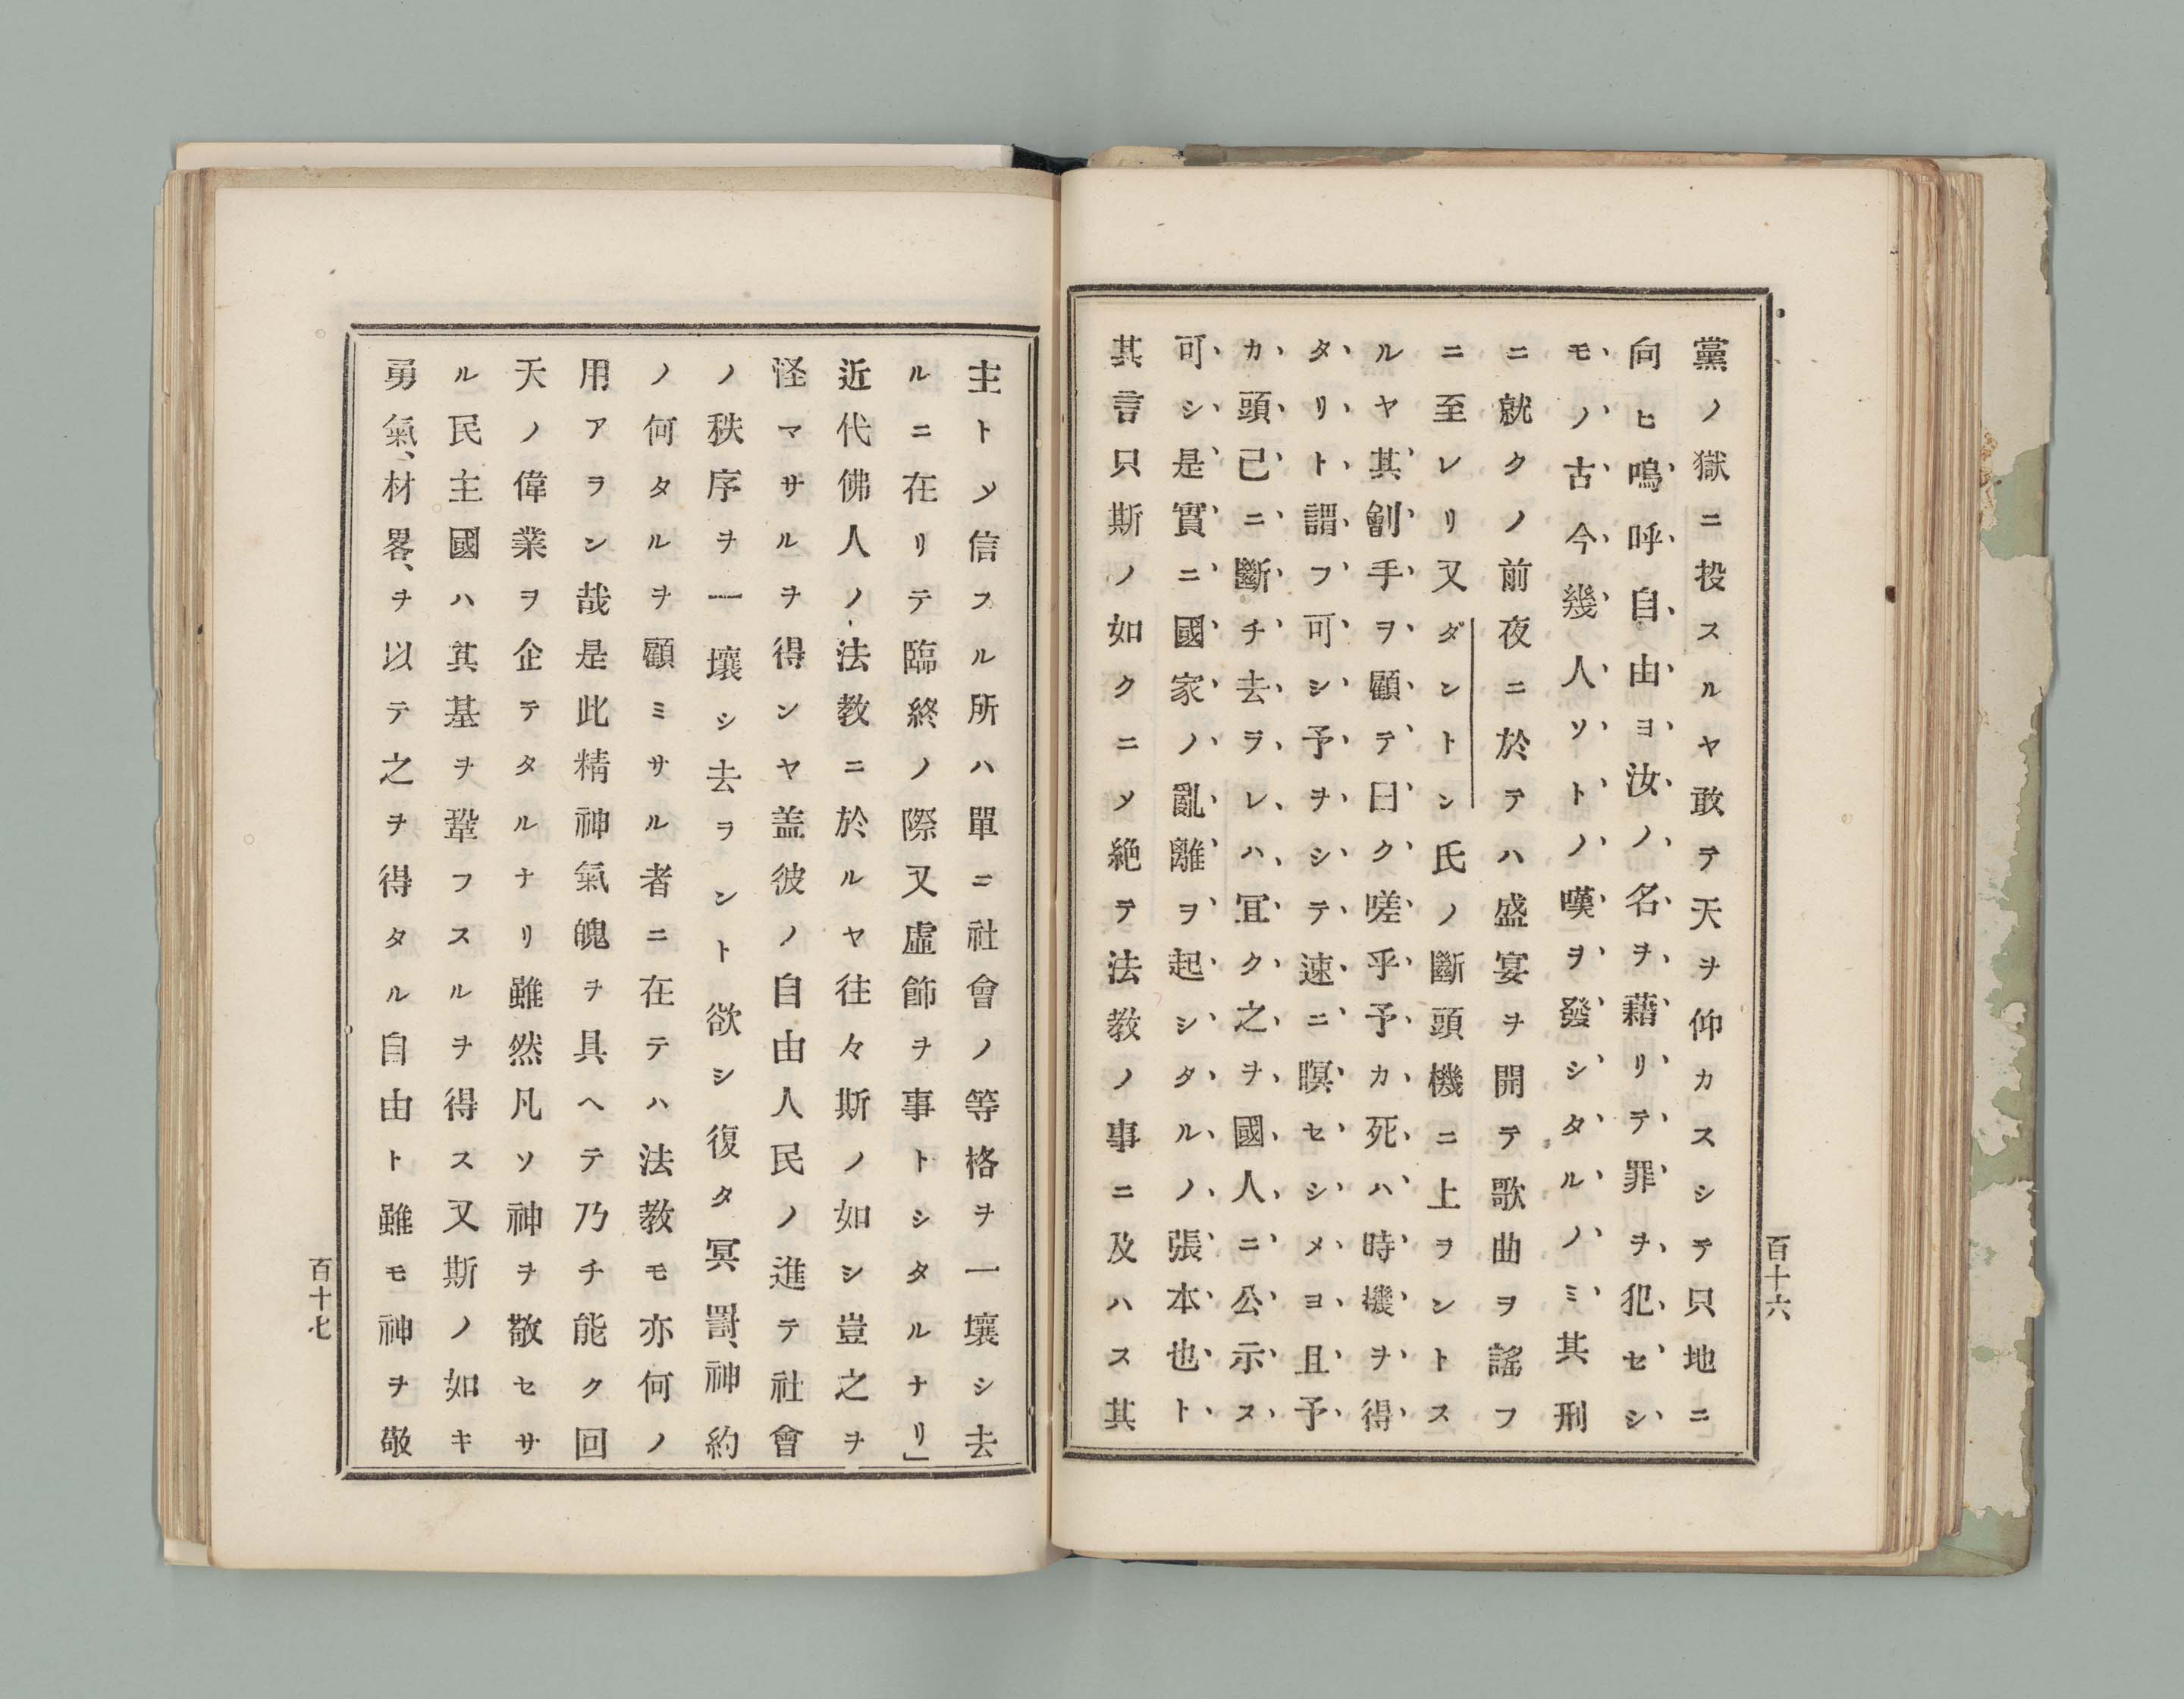 黨ノ獄ニ投スルヤ敢テ天ヲ仰カスシテ只地ニ
向ヒ嗚呼自由ヨ汝ノ名ヲ藉リテ罪ヲ犯セシ
モノ古今幾人ソトノ嘆ヲ發シタルノミ其刑
ニ就クノ前夜ニ於テハ盛宴ヲ開テ歌曲ヲ謠フ
ニ至レリ又ダントン氏ノ斷頭機ニ上ヲントス
ルヤ其劊手ヲ顧テ曰ク嗟乎予カ死ハ時機ヲ得
タリト謂フ可シ予ヲシテ速ニ瞑セシメヨ且予
カ頭已ニ斷チ去ラレハ宜ク之ヲ國人ニ公示ス
可シ是實ニ國家ノ亂離ヲ起シタルノ張本也ト
其言只斯ノ如クニメ絶テ法教ノ事ニ及ハス其
百十六
主トメ信スル所ハ單ニ社會ノ等格ヲ一壞シ去
ルニ在リテ臨終ノ際又虛飾ヲ事トシタルナリ」
近代佛人ノ法教ニ於ルヤ往々斯ノ如シ豈之ヲ
怪マサルヲ得ンヤ盖彼ノ自由人民ノ進テ社會
ノ秩序ヲ一壞シ去ラントシ欲シ復タ冥罰、神約
ノ何タルヲ顧ミサル者ニ在テハ法教モ亦何ノ
用アヲン哉是此精神氣魄ヲ具ヘテ乃チ能ク回
天ノ偉業ヲ企テタルナリ雖然凡ソ神ヲ敬セサ
ル民主國ハ其基ヲ鞏フスルヲ得ス又斯ノ如キ
勇氣、材畧、ヲ以テ之ヲ得タル自由ト雖モ神ヲ敬
百十七